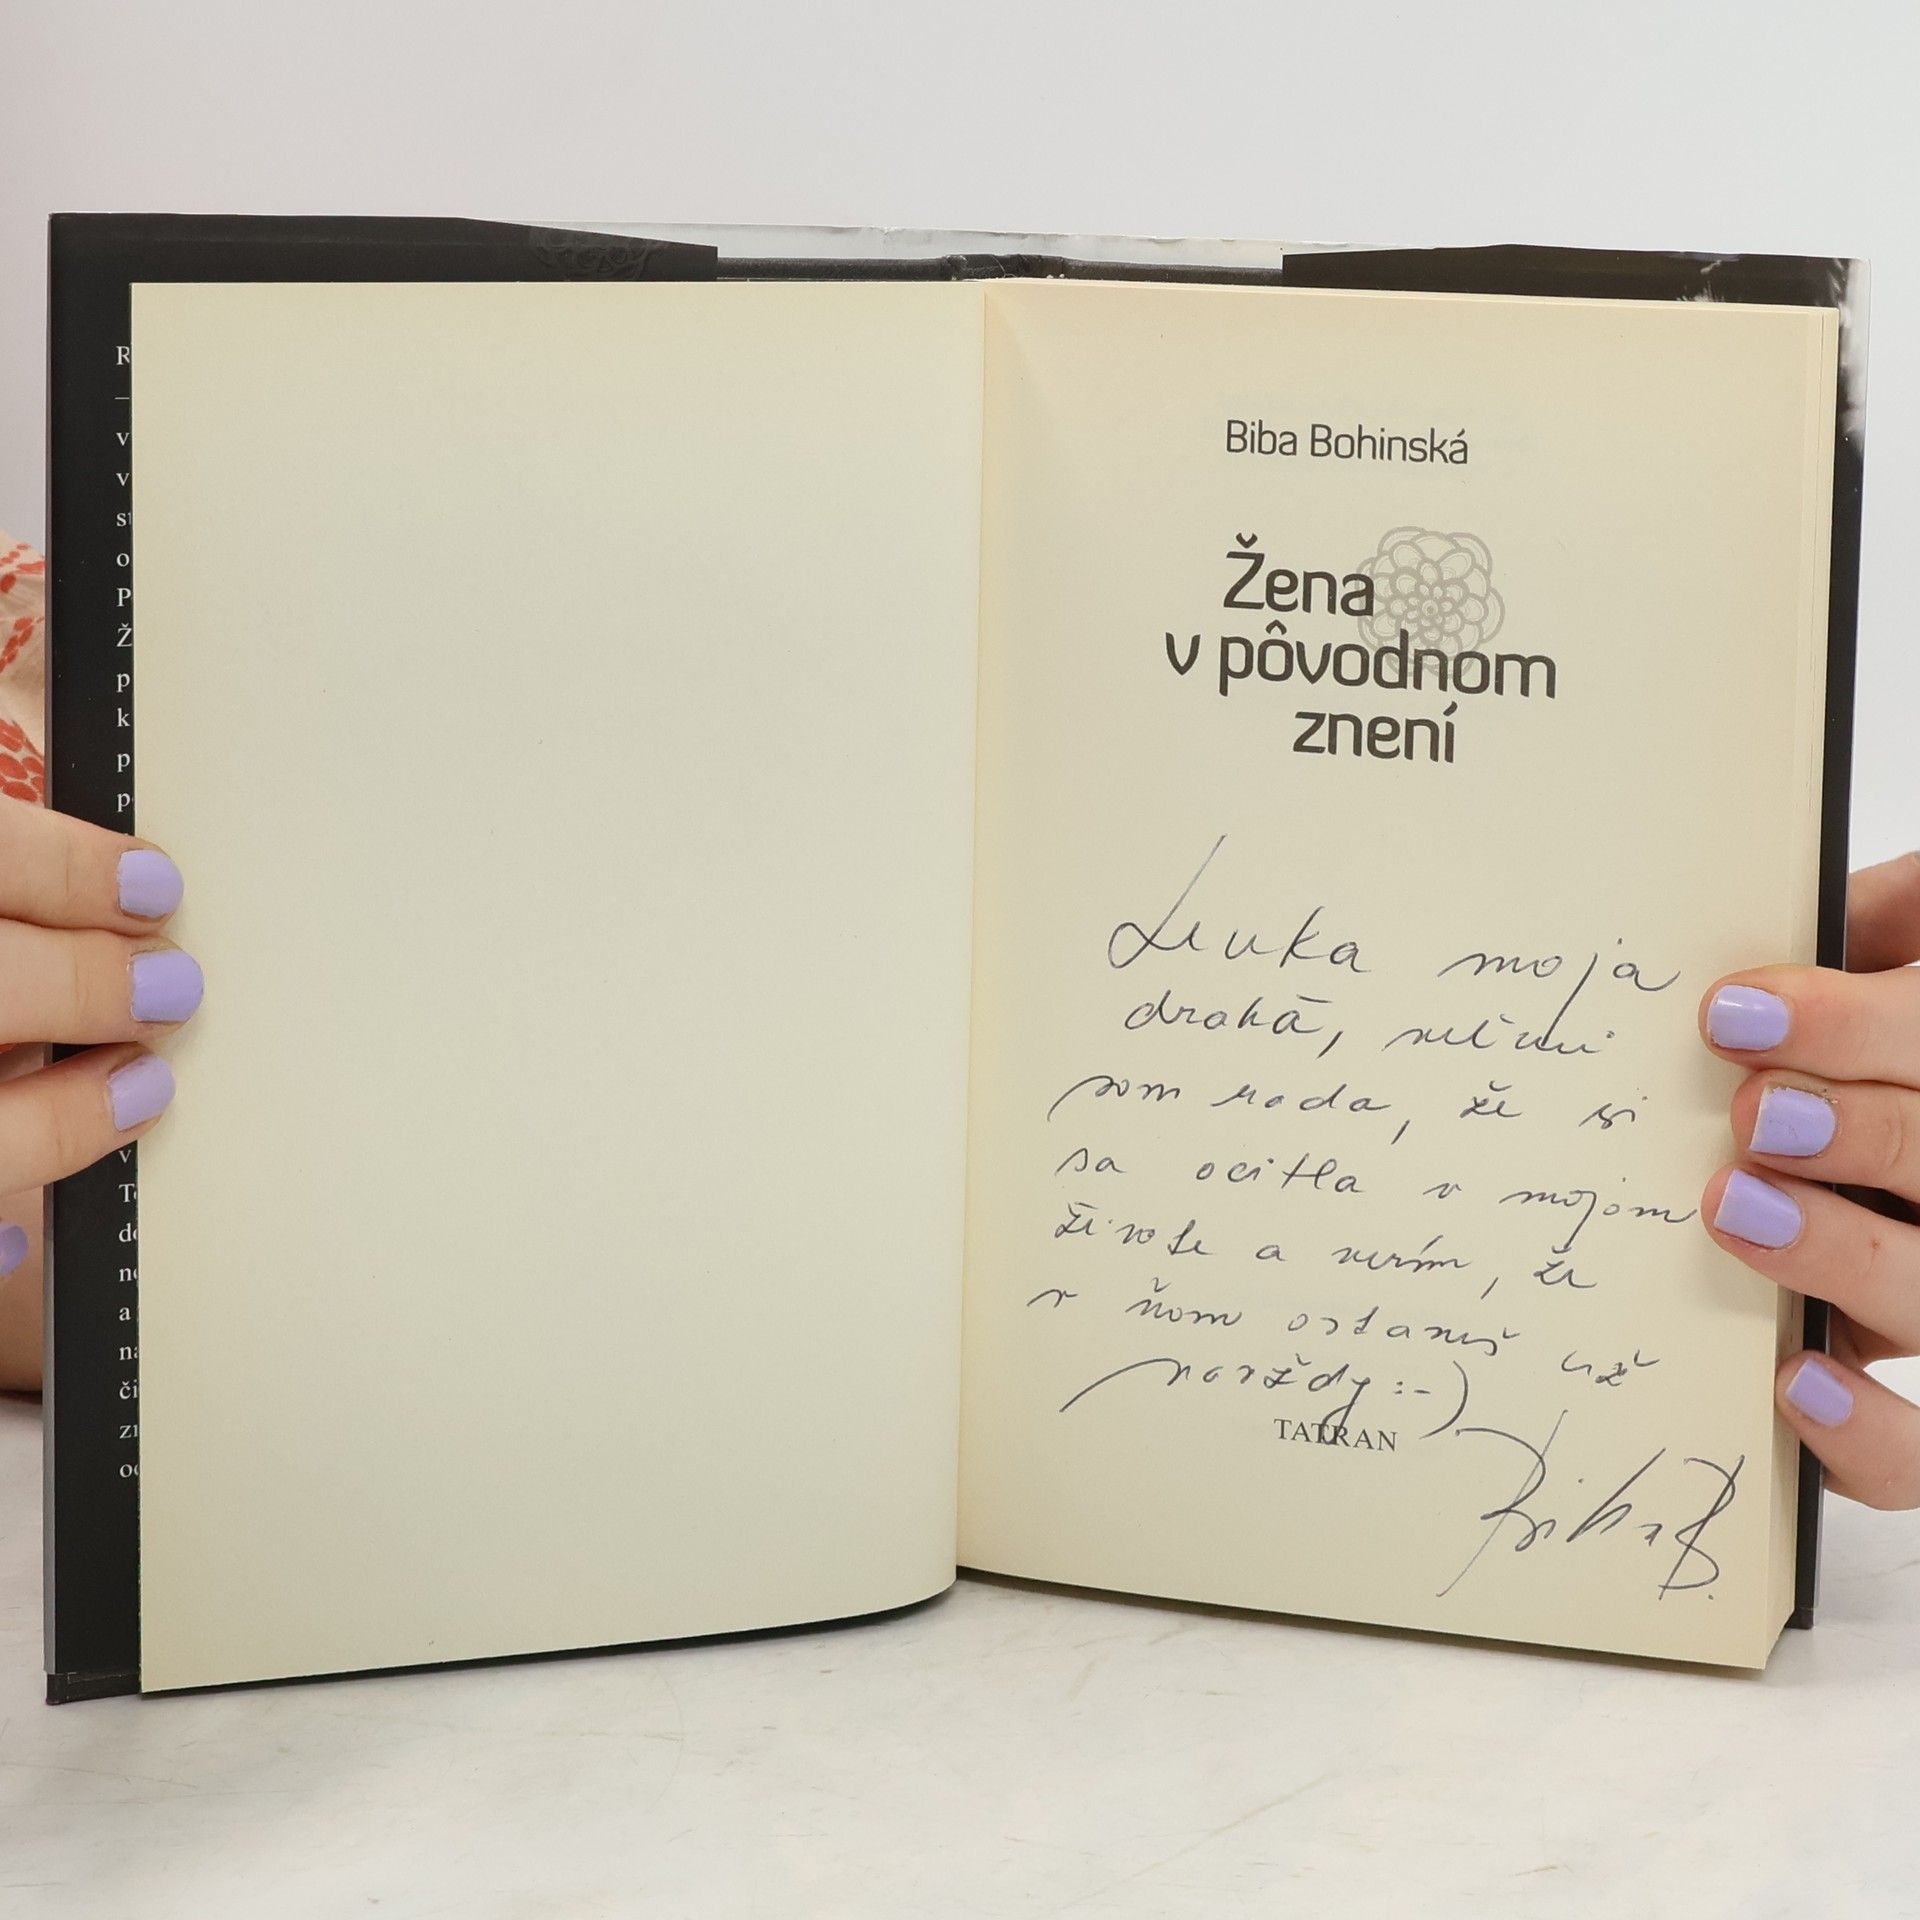 R
v
v
st
o
P
Ž
p
k
p
p
v
do
a
či
Biba Bohinská
Žena
v pôvodnom
znení
Lenka moja
drahá, veľmi
som rada, že si
sa ocitla v mojom
živote a verím, že
v ňom ostaneš už
navždy :-)
TATRAN
Biba B.